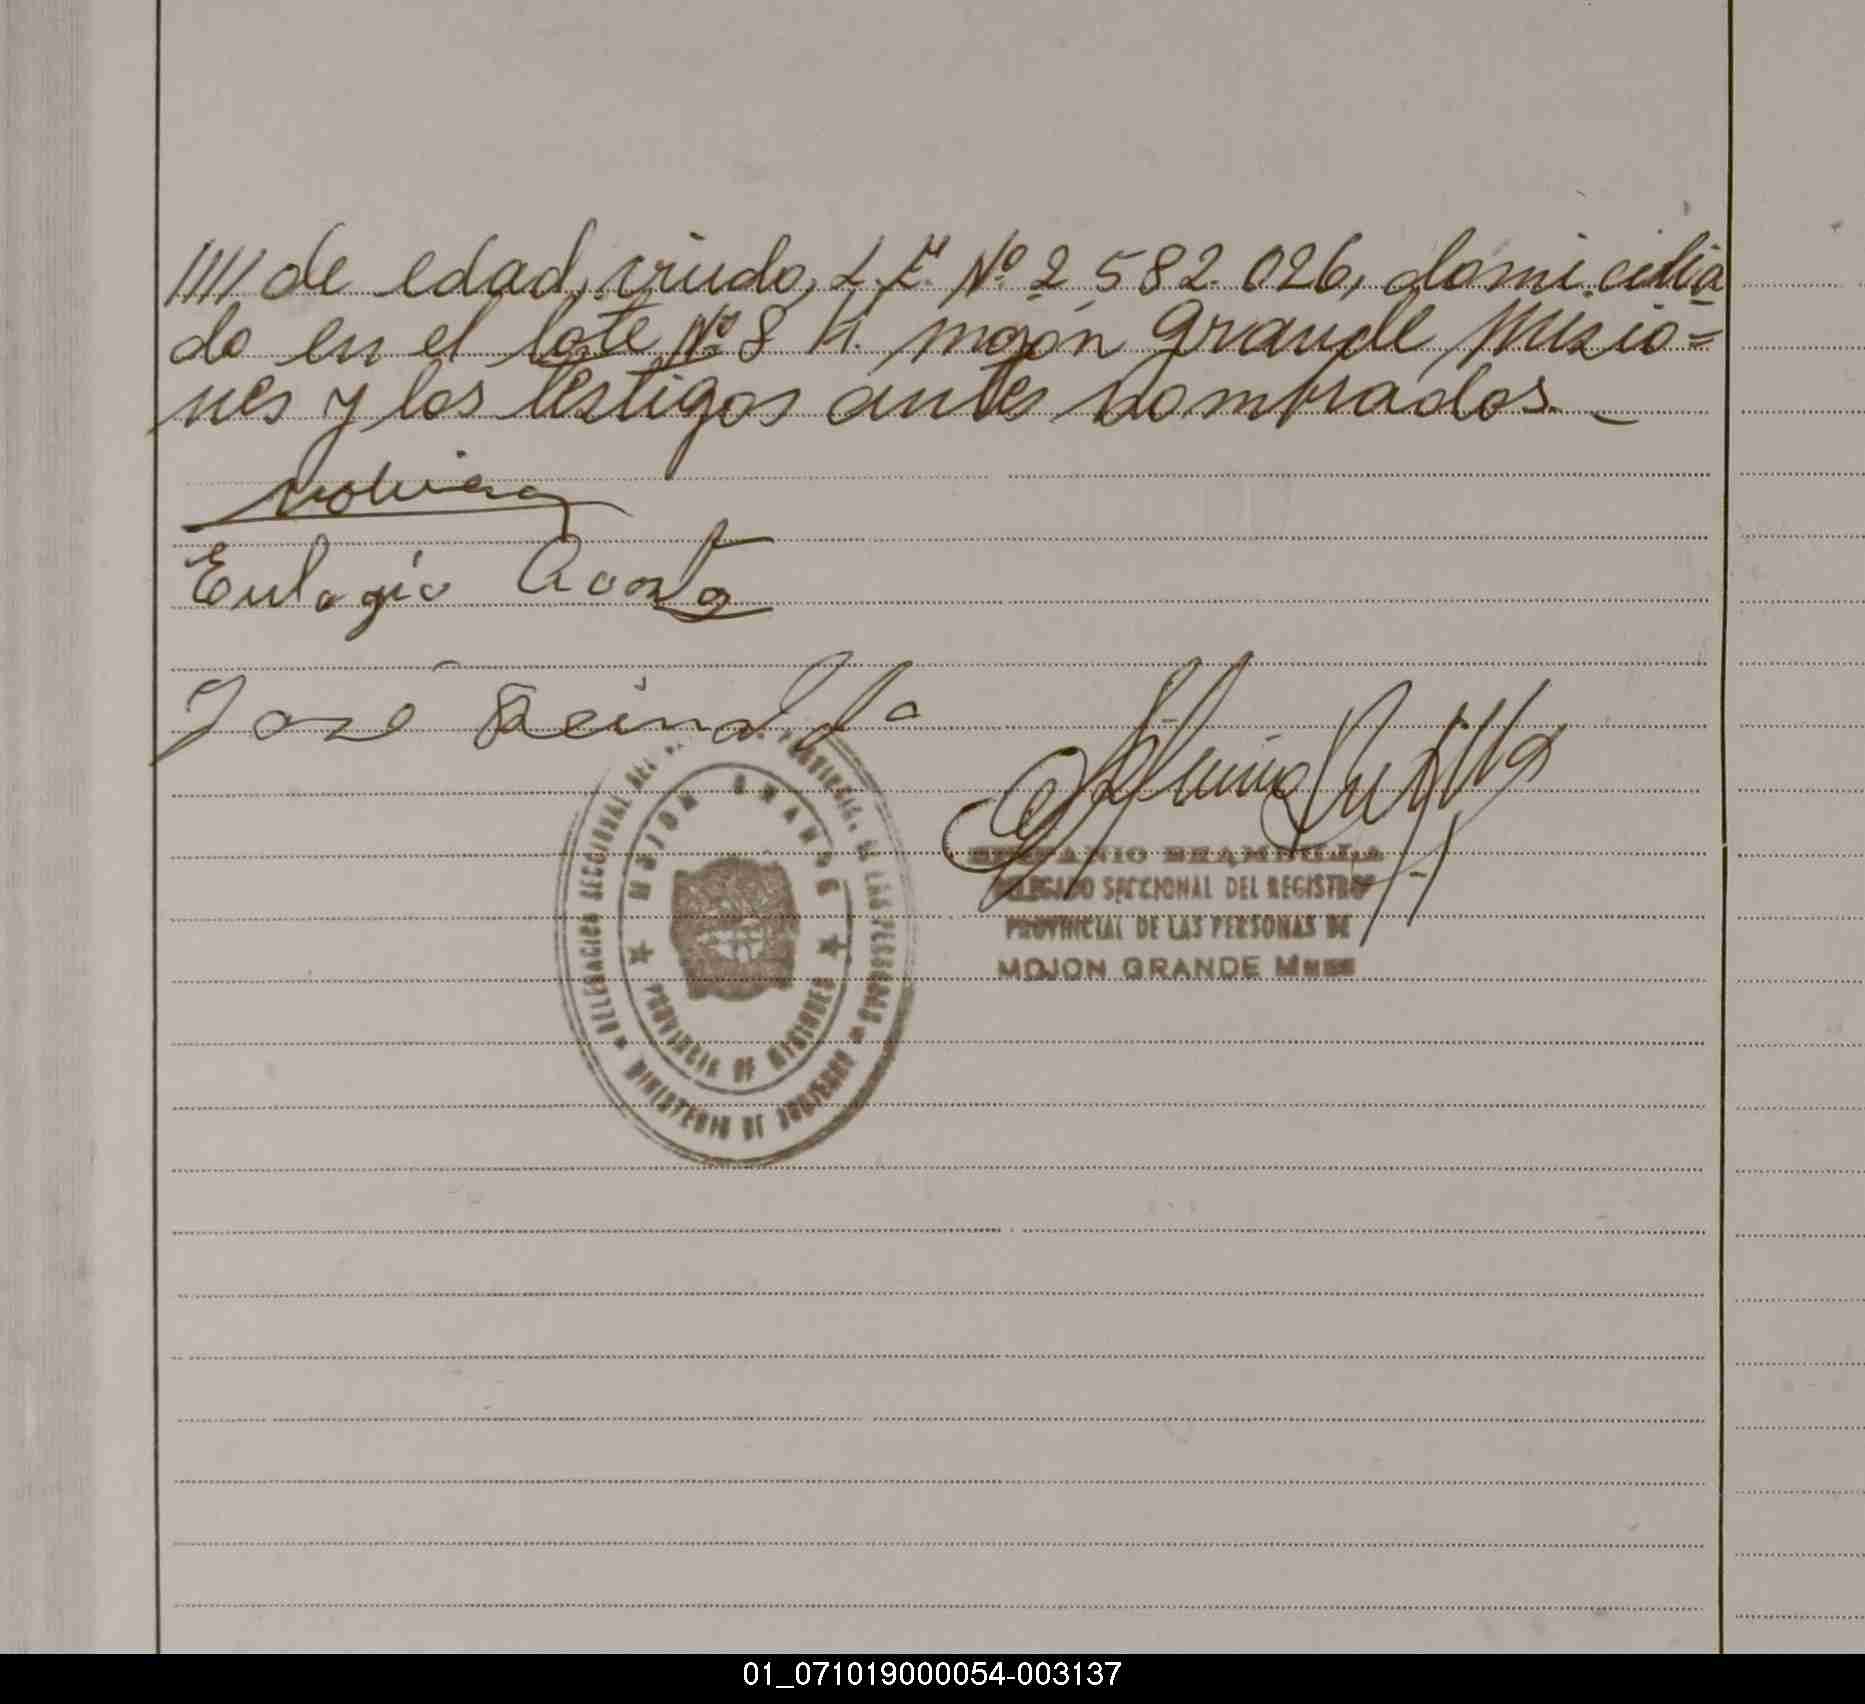 //// de edad, viudo, L.E. Nº 2 582.026, domicilia
do en el lote Nº 8 H. mojón grande Misio=
nes y los testigos antes nombrados.
Eulogio Acosta
José Reinal
DELEGACION SECCIONAL DEL PROVINCIAL DE LAS PERSONAS
MOJON GRANDE
PROVINCIA DE MISIONES
MINISTERIO DE GOBIERNO
BRAMBILLA
DELEGADO SECCIONAL DEL REGISTRO
PROVINCIAL DE LAS PERSONAS DE
MOJON GRANDE
01_071019000054-003137